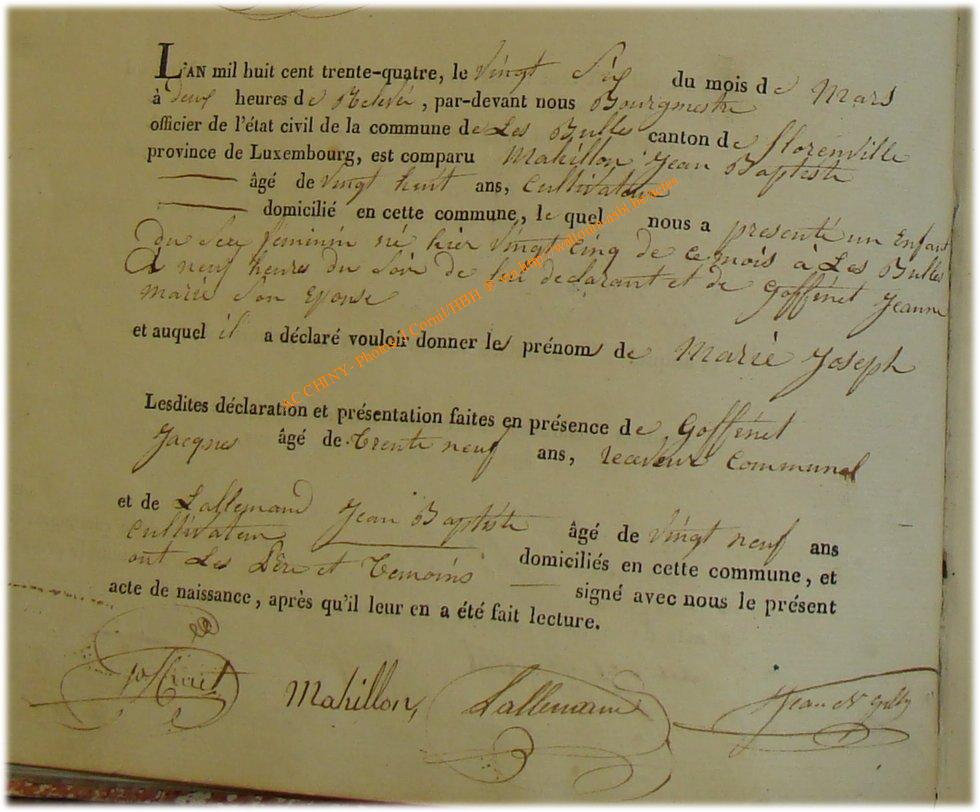 L'AN mil huit cent trente-quatre, le Vingt Six du mois de Mars
à deux heures de Relevée, par-devant nous Bourgmestre
officier de l'état civil de la commune de Les Bulles canton de florenville
province de Luxembourg, est comparu Mahillon Jean Baptiste
âgé de vingt huit ans, Cultivateur
domicilié en cette commune, le quel nous a presenté un Enfant
du Sexe féminin né hier Vingt Cinq de ce mois à Les Bulles
à neuf heures du Soir de lui declarant et de Goffinet Jeanne
Marie Son Epouse
et auquel il a déclaré vouloir donner les prénoms de Marie Joseph
Lesdites déclaration et présentation faites en présence de Goffinet
Jacques âgé de Trente neuf ans, receveur Communal
et de Lallemand Jean Baptiste âgé de Vingt neuf ans
Cultivateur domiciliés en cette commune, et
ont Les Père et Temoins signé avec nous le présent
acte de naissance, après qu'il leur en a été fait lecture.
Goffinet Mahillon, Lallemand Jean
AC CHINY- Photos J Cornil/HBH